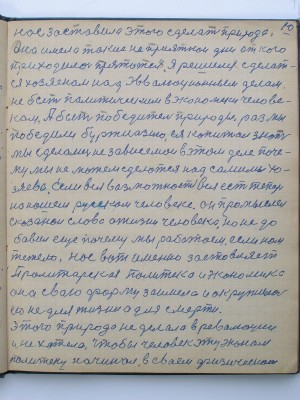 нас заставила этого сделат природа,
Она имела такие не приятнои дни от кого
приходилос прятатся. Я решился сделат-
ся хозяеном над Эввалюционым делам.
не быть политическим в Экономки челове-
кам, А быть победителем природы, раз мы
победили буржазию, ея капитал знаем
мы сделалис независемои в этом деле поче-
му мы не можем сделаются над самими хо-
зяева, Если вся возможност вся ест тепер
на нашем русском человеке. он промыслем
сказаной слова а жизни человека, но не до
бавил еще почему мы работаем, если нам
тежело, Нас вот именно заставляет
Пролитарская политека и Экономика
она сваю форму заимела и окружилас
не для жизни а для смерти.
Этого природа не делала в революции
и не хатела, чтобы человек эту эконом
политеку начинал, в сваем физическом